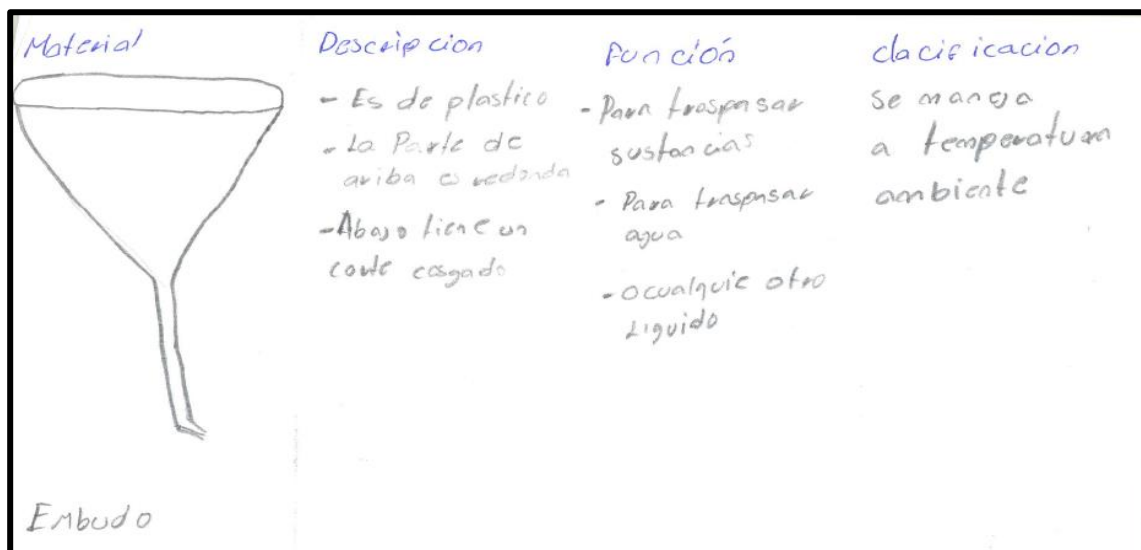 Material
Embudo
Descripcion
- Es de plastico
- La Parte de
ariba es redonda
- Abajo tiene un
corte cosgado
Función
- Para traspasar
sustancias
- Para traspasar
agua
- o cualquie otro
Liquido
clacificacion
se maneja
a temperatura
ambiente